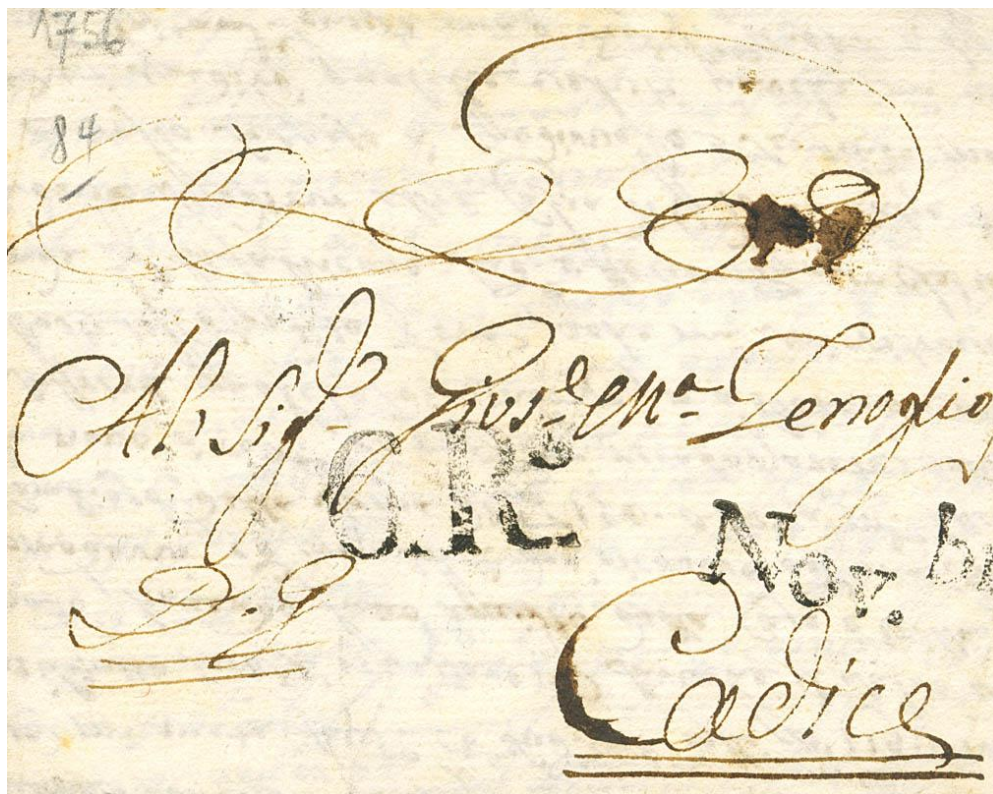 1756
84
Al Sig.r Gius.e M.a Zenoglio
6. R.s
Nov. br
D. G
Cadice